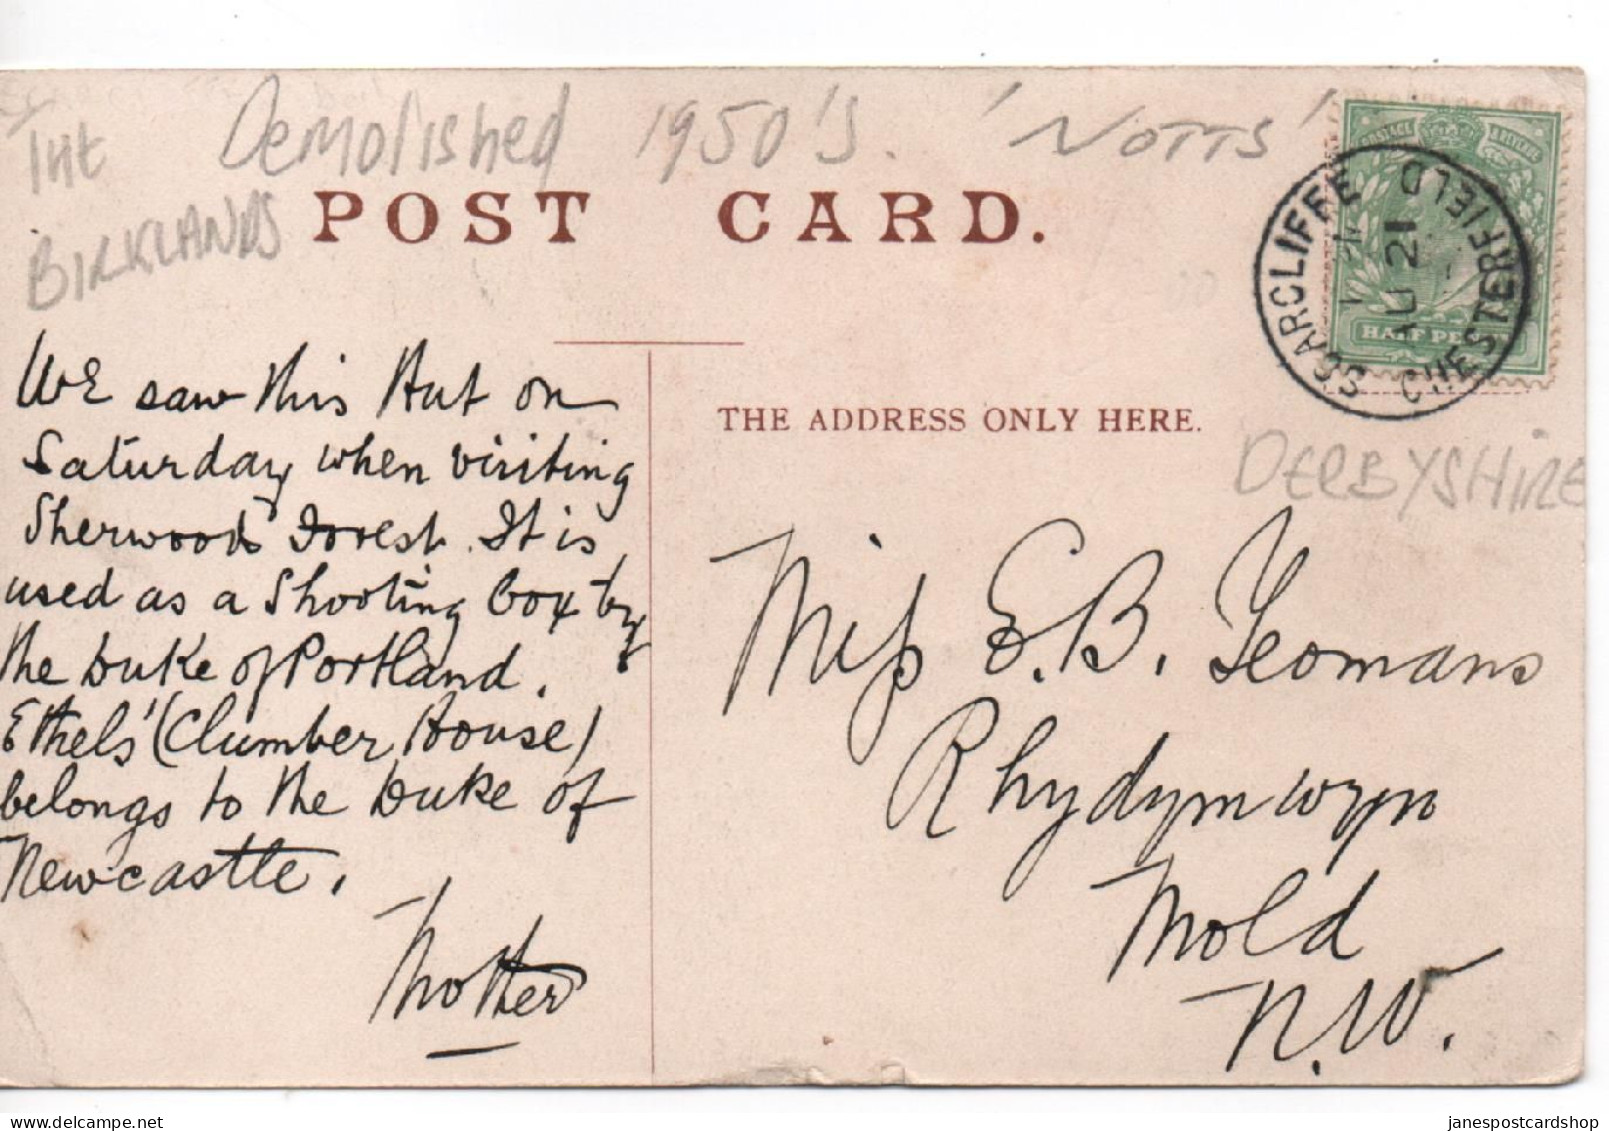 Demolished 1950's. 'NOTTS'
BIRKLANDS
POST CARD.
SCARCLIFFE
CHESTERFIELD
AU 21
POSTAGE REVENUE
HALF PENNY
We saw this Hut on
Saturday when visiting
Sherwood Forest. It is
used as a Shooting box by
the Duke of Portland.
Ethels' (Clumber House)
belongs to the Duke of
Newcastle.
Mother
THE ADDRESS ONLY HERE.
DERBYSHIRE
Miss E. B. Yeomans
Rhydymwyn
Mold
N.W.
janespostcardshop